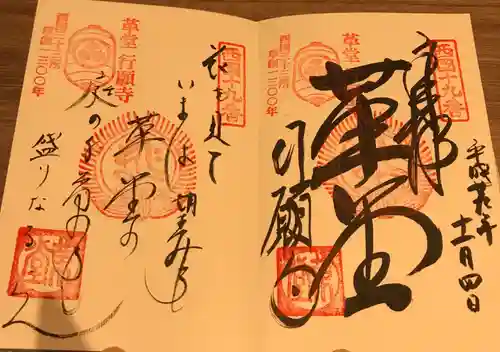 西国十九番
奉拝
革堂
行願
平成
十一月四日
革堂
西国三十三所
草創一三〇〇年
西国十九番
花を見て
いまは望みも
革堂の
庭の千草も
盛りなるらん
革堂行願寺
西国三十三所
草創一三〇〇年